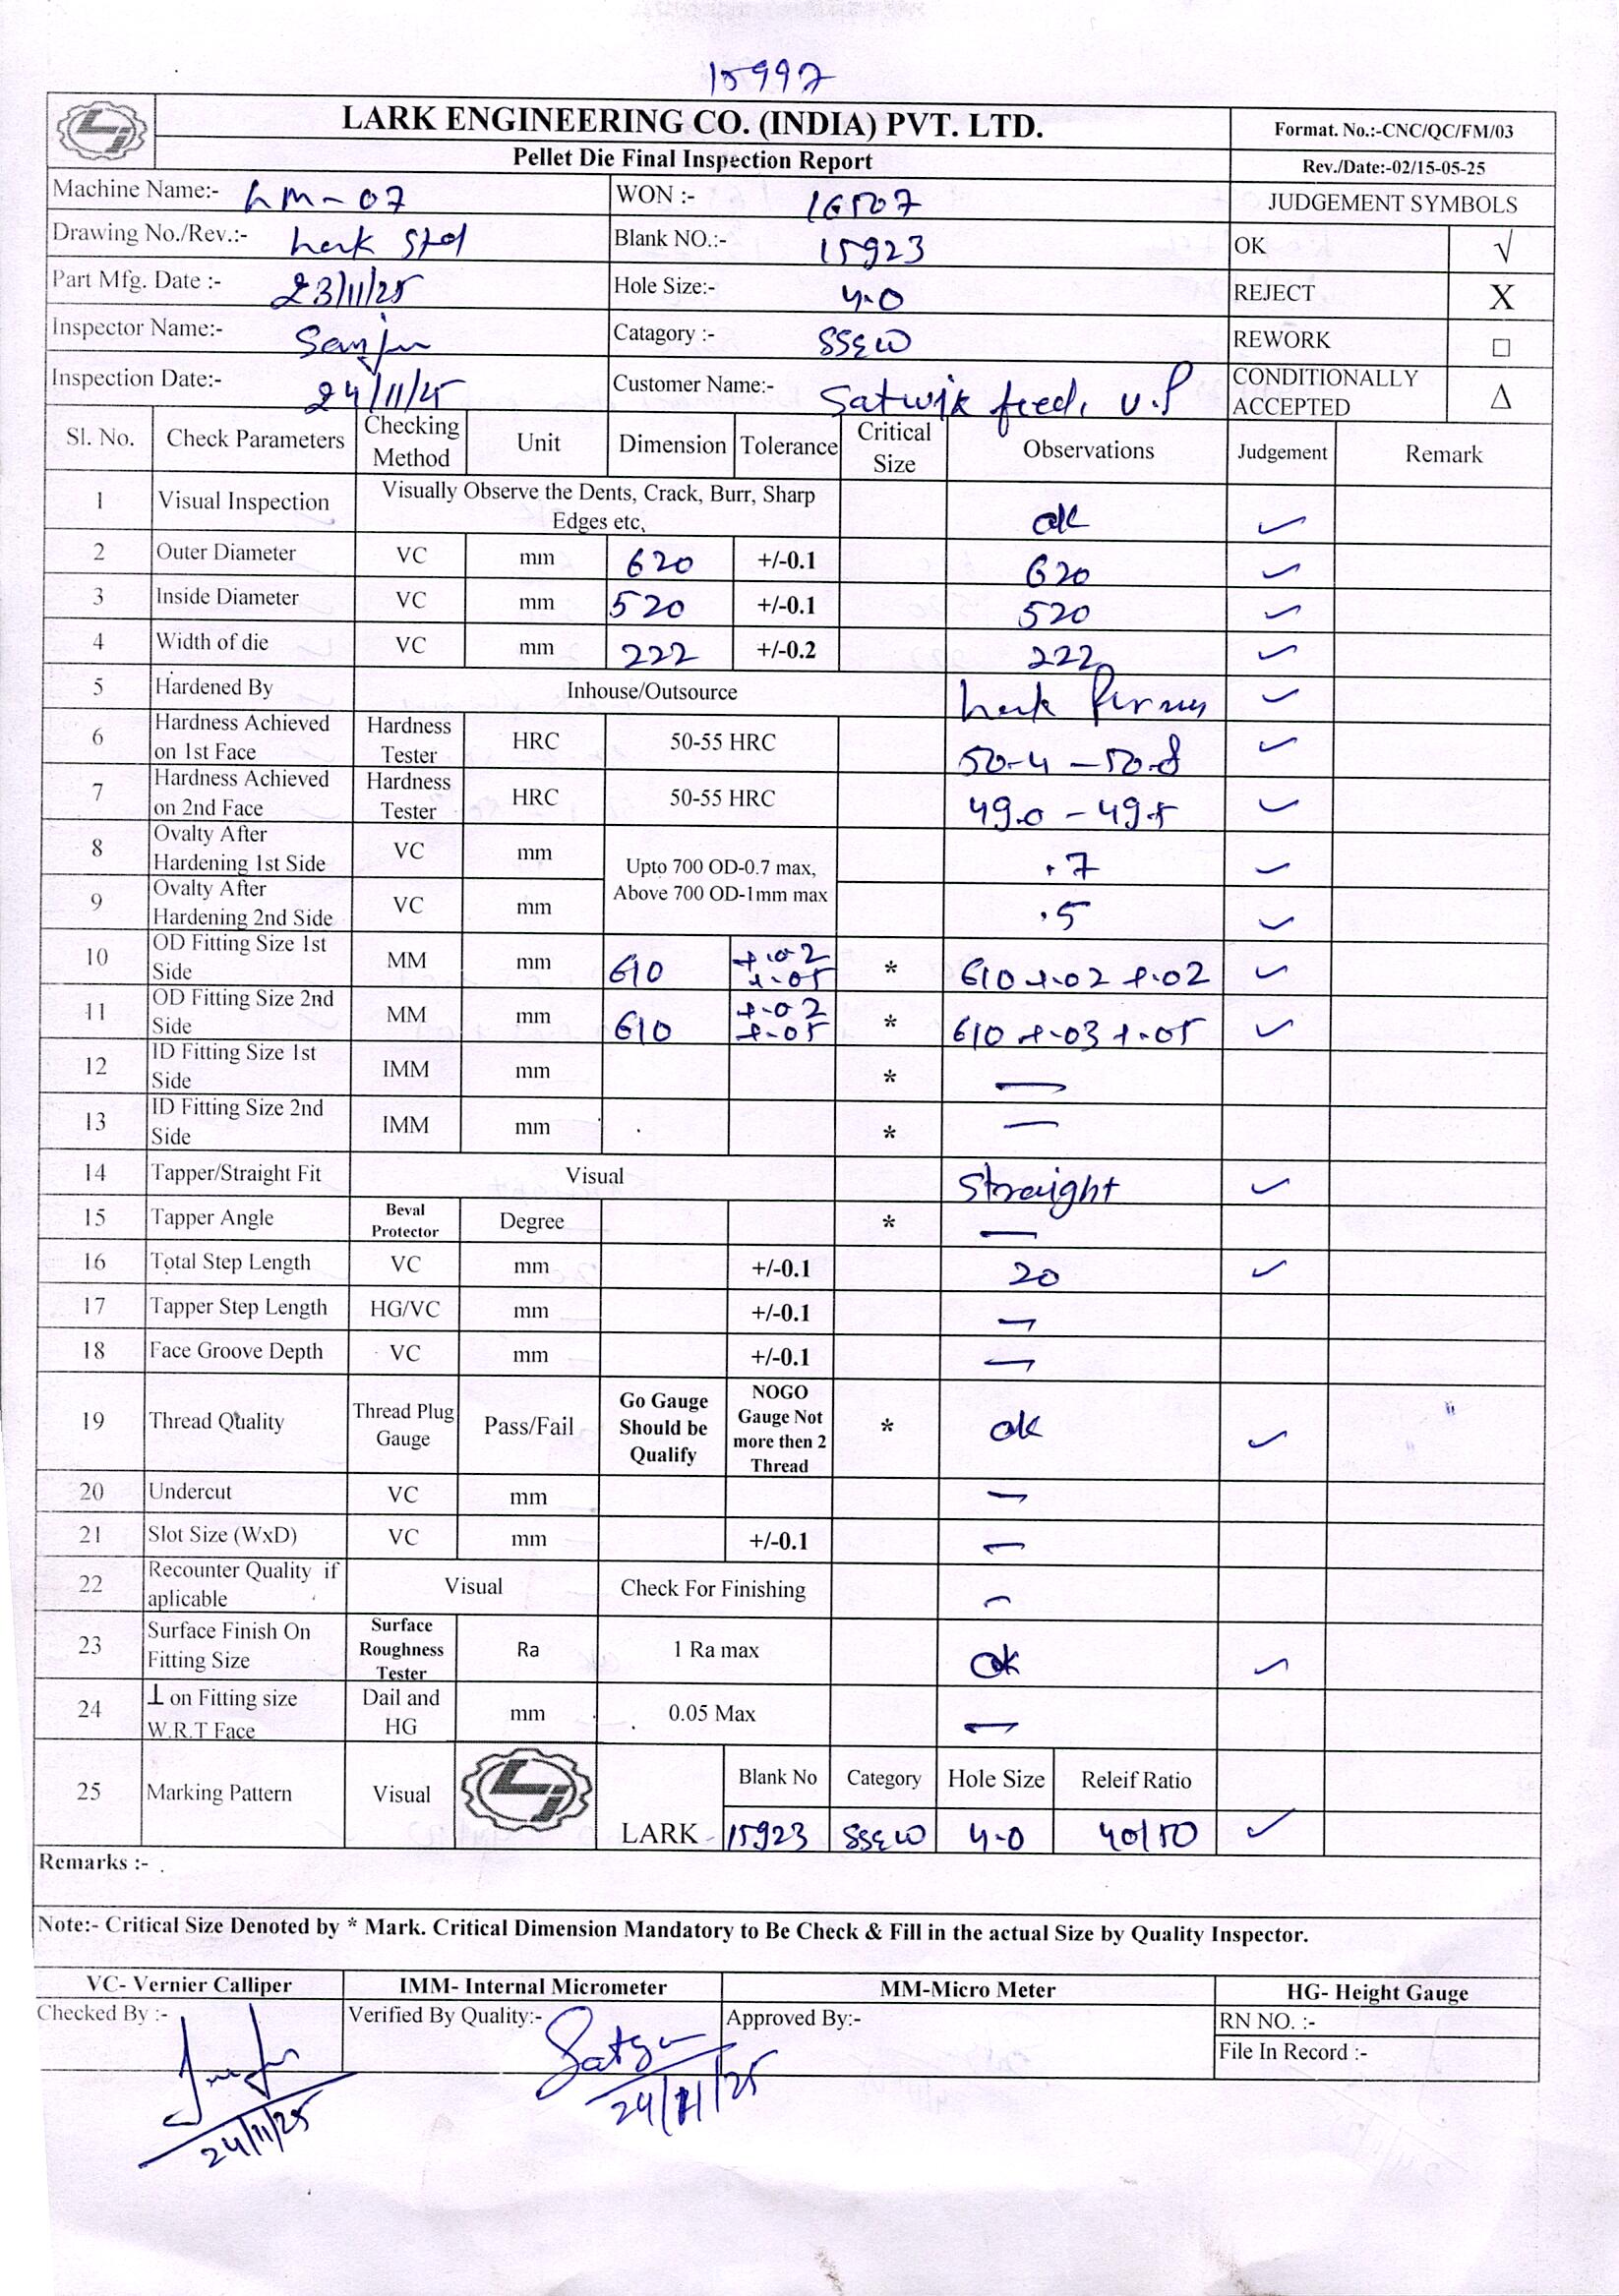 15997
LARK ENGINEERING CO. (INDIA) PVT. LTD.
Format. No.:-CNC/QC/FM/03
Pellet Die Final Inspection Report
Rev./Date:-02/15-05-25
Machine Name:- LM-07 WON :- 16507 JUDGEMENT SYMBOLS
Drawing No./Rev.:- Lark Std Blank NO.:- 15923 OK √
Part Mfg. Date :- 23/11/25 Hole Size:- 4.0 REJECT X
Inspector Name:- Sanju Catagory :- SSEW REWORK □
Inspection Date:- 24/11/25 Customer Name:- Satwik feed, U.P CONDITIONALLY ACCEPTED Δ
Sl. No. Check Parameters Checking Method Unit Dimension Tolerance Critical Size Observations Judgement Remark
1 Visual Inspection Visually Observe the Dents, Crack, Burr, Sharp Edges etc. ok ✓
2 Outer Diameter VC mm 620 +/-0.1 620 ✓
3 Inside Diameter VC mm 520 +/-0.1 520 ✓
4 Width of die VC mm 222 +/-0.2 222 ✓
5 Hardened By Inhouse/Outsource Lark ✓
6 Hardness Achieved on 1st Face Hardness Tester HRC 50-55 HRC 50.4 - 50.8 ✓
7 Hardness Achieved on 2nd Face Hardness Tester HRC 50-55 HRC 49.0 - 49.5 ✓
8 Ovalty After Hardening 1st Side VC mm Upto 700 OD-0.7 max, Above 700 OD-1mm max .7 ✓
9 Ovalty After Hardening 2nd Side VC mm .5 ✓
10 OD Fitting Size 1st Side MM mm 610 +.02 +.05 * 610 +.02 +.02 ✓
11 OD Fitting Size 2nd Side MM mm 610 +.02 +.05 * 610 +.03 +.05 ✓
12 ID Fitting Size 1st Side IMM mm * —
13 ID Fitting Size 2nd Side IMM mm * —
14 Tapper/Straight Fit Visual Straight ✓
15 Tapper Angle Beval Protector Degree * —
16 Total Step Length VC mm +/-0.1 20 ✓
17 Tapper Step Length HG/VC mm +/-0.1 —
18 Face Groove Depth VC mm +/-0.1 —
19 Thread Quality Thread Plug Gauge Pass/Fail Go Gauge Should be Qualify NOGO Gauge Not more then 2 Thread * ok ✓
20 Undercut VC mm —
21 Slot Size (WxD) VC mm +/-0.1 —
22 Recounter Quality if aplicable Visual Check For Finishing —
23 Surface Finish On Fitting Size Surface Roughness Tester Ra 1 Ra max ok ✓
24 ⊥ on Fitting size W.R.T Face Dail and HG mm 0.05 Max —
25 Marking Pattern Visual LARK Blank No Category Hole Size Releif Ratio
15923 SSEW 4.0 40/50 ✓
Remarks :-
Note:- Critical Size Denoted by * Mark. Critical Dimension Mandatory to Be Check & Fill in the actual Size by Quality Inspector.
VC- Vernier Calliper IMM- Internal Micrometer MM-Micro Meter HG- Height Gauge
Checked By :- Verified By Quality:- Approved By:- RN NO. :-
File In Record :-
24/11/25 24/11/25